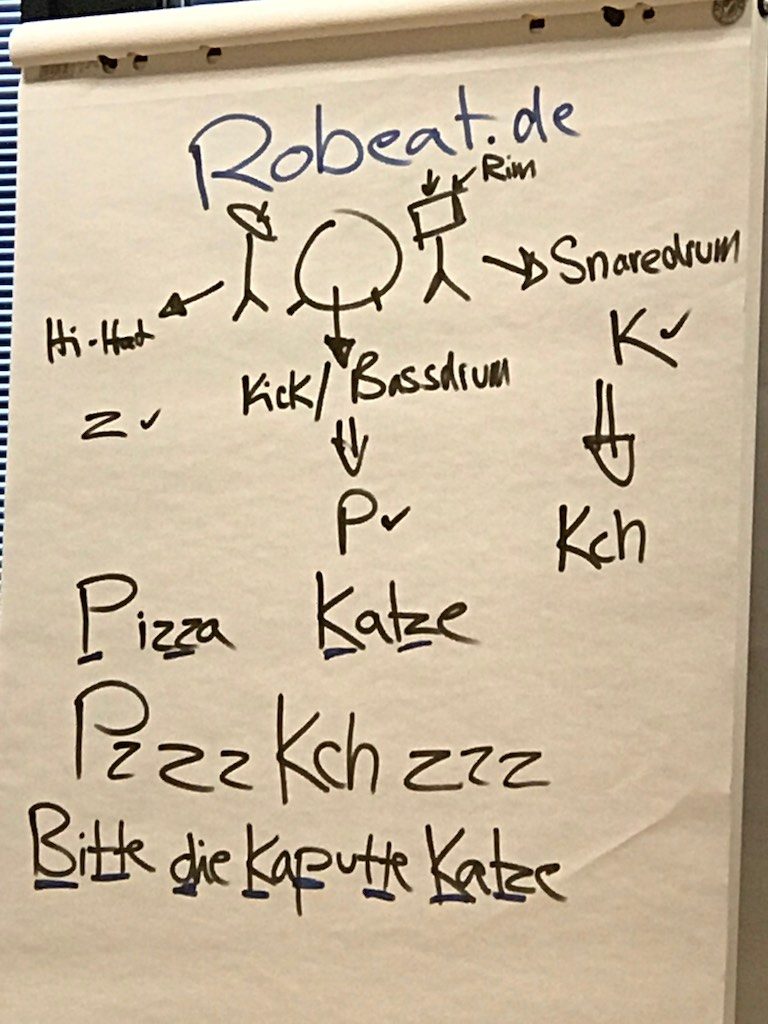 Robeat.de
Rim
Snaredrum
Hi-Hat
Kick/Bassdrum
K✓
Z✓
P✓
Kch
Pizza Katze
Pzzz Kch zzz
Bitte die kaputte Katze